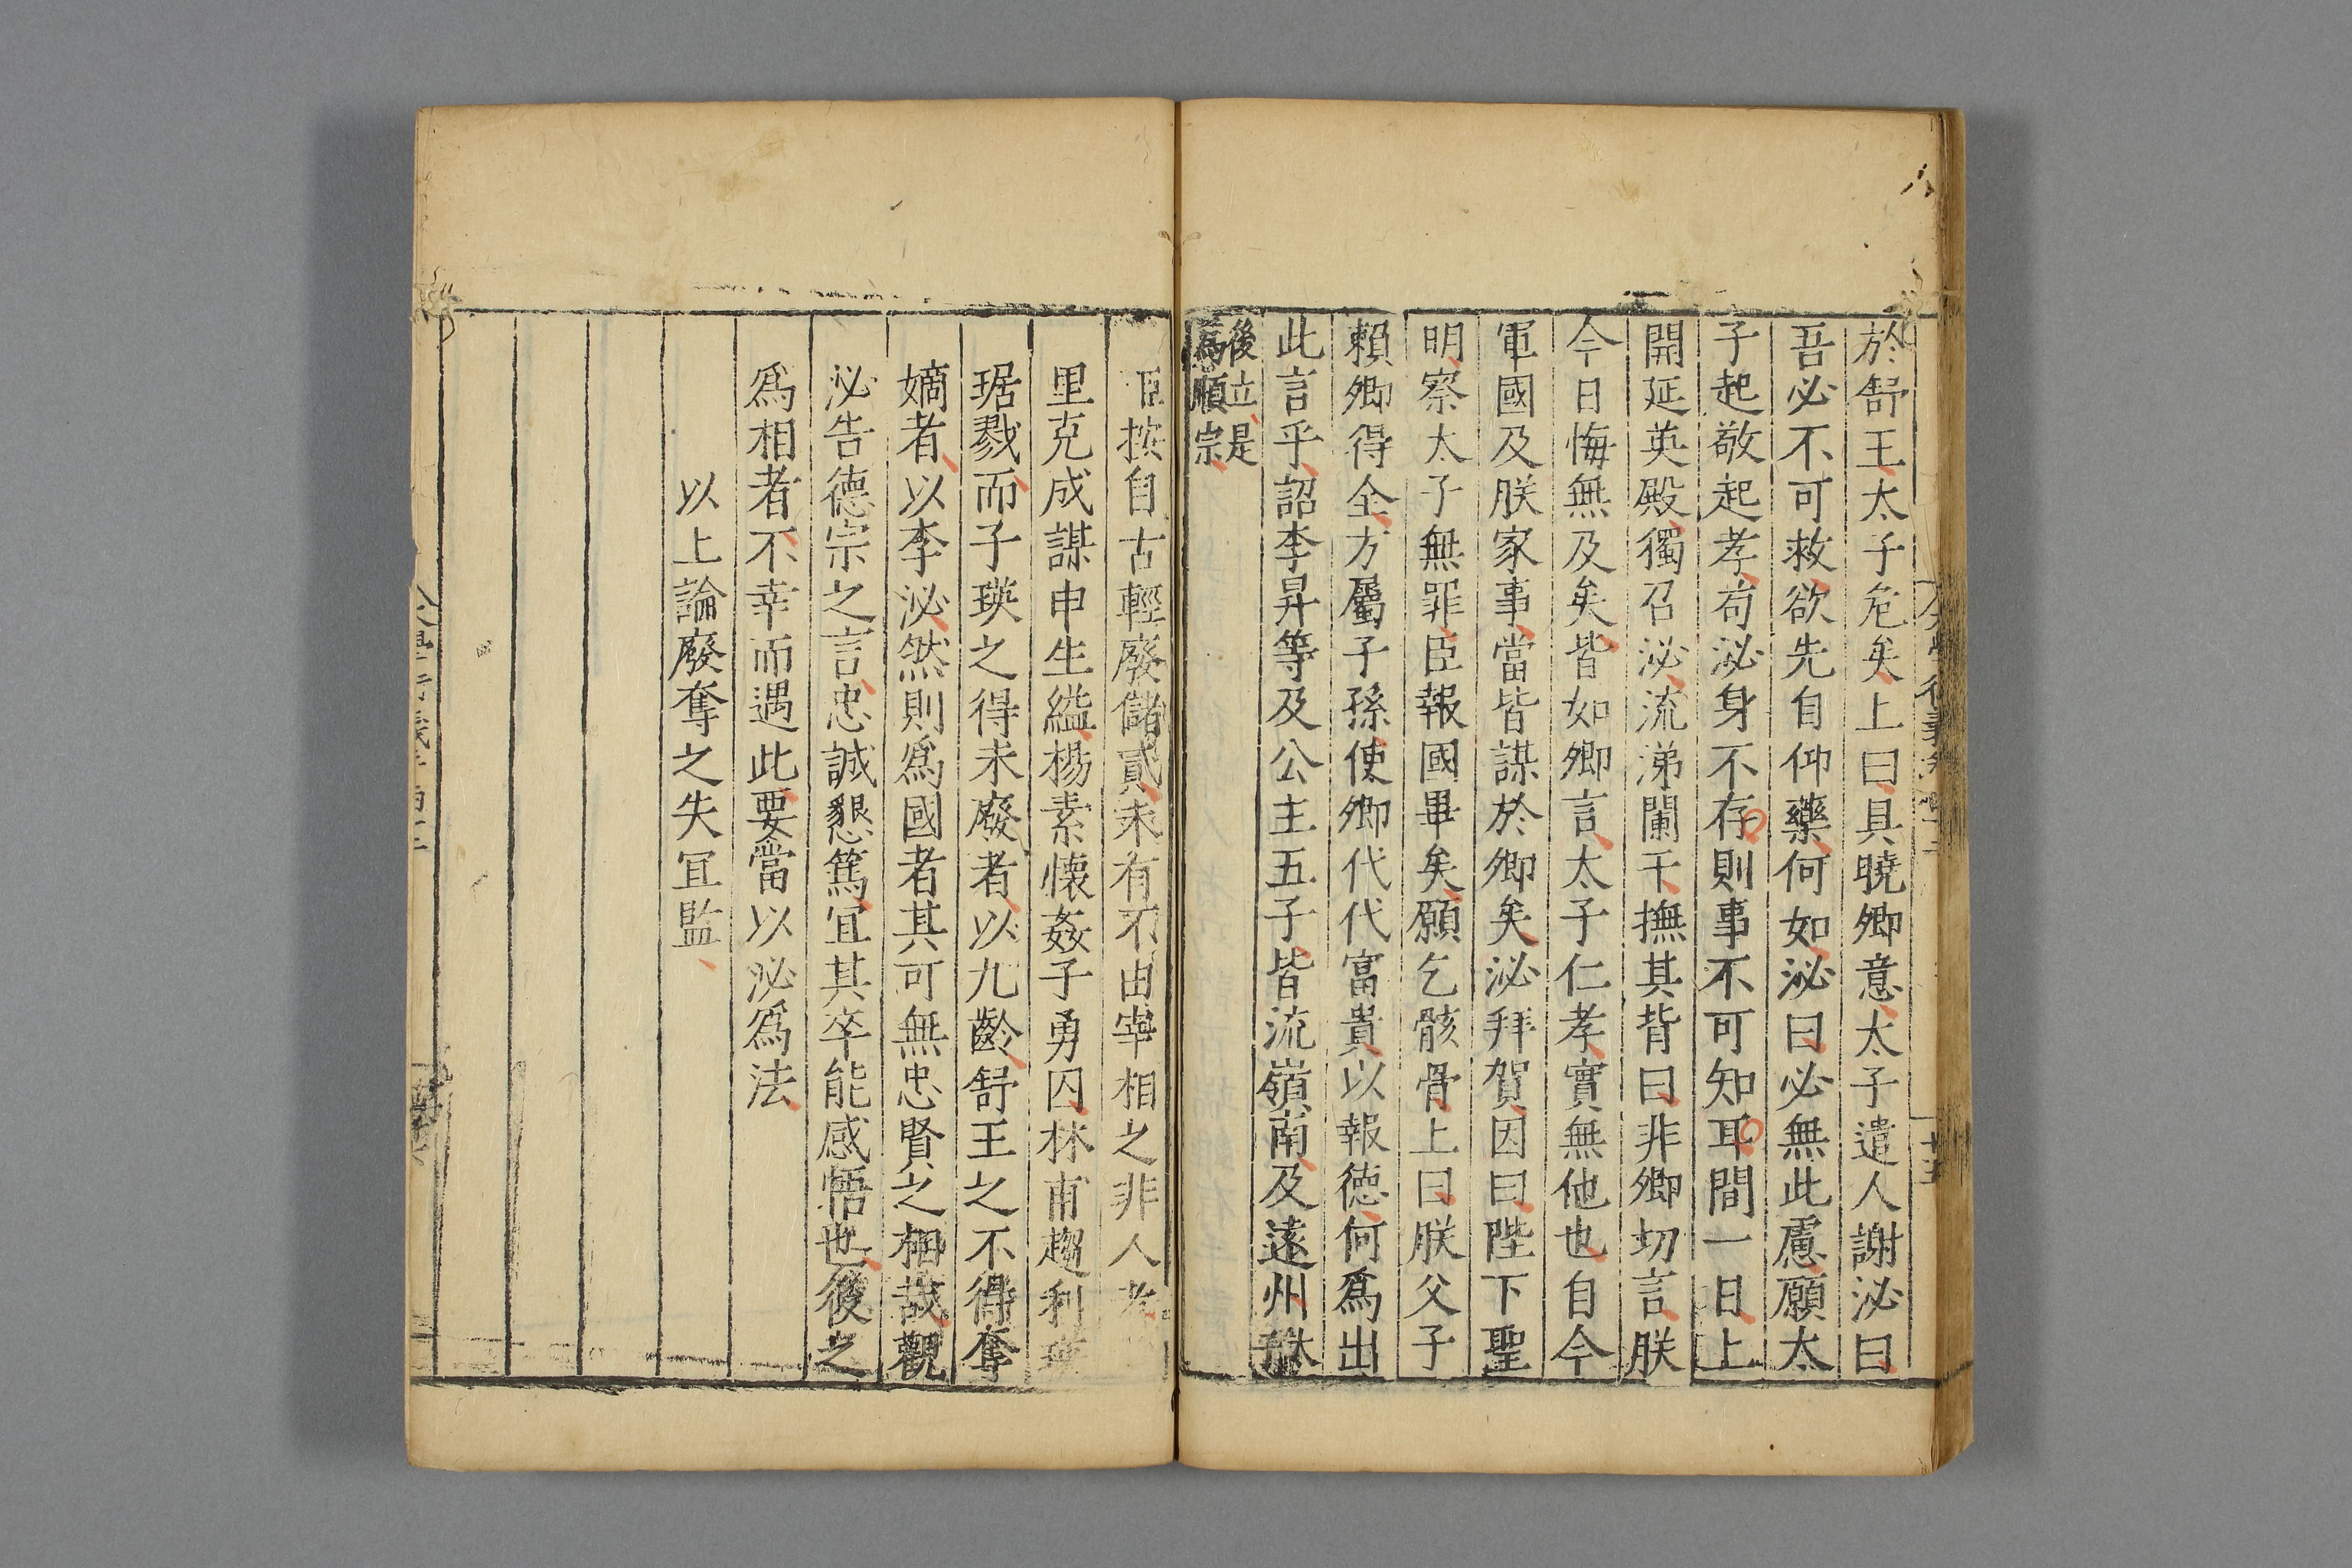 於舒王太子危矣上曰具曉卿意太子遣人謝泌曰
吾必不可救欲先自仰藥何如泌曰必無此慮願太
子起敬起孝苟泌身不存則事不可知耳間一日上
開延英殿獨召泌流涕闌干撫其背曰非卿切言朕
今日悔無及矣皆如卿言太子仁孝實無他也自今
軍國及朕家事當皆謀於卿矣泌拜賀因曰陛下聖
明察太子無罪臣報國畢矣願乞骸骨上曰朕父子
賴卿得全方屬子孫使卿代代富貴以報德何爲出
此言乎詔李昇等及公主五子皆流嶺南及遠州
後立是
爲順宗
臣按自古輕廢儲貳未有不由宰相之非人者
里克成謀申生縊楊素懷姦子勇囚林甫趨利瑛
琚戮而子瑛之得未廢者以九齡舒王之不得奪
嫡者以李泌然則爲國者其可無忠賢之相哉觀
泌告德宗之言忠誠懇篤宜其卒能感悟也後之
爲相者不幸而遇此要當以泌爲法
以上論廢奪之失宜監